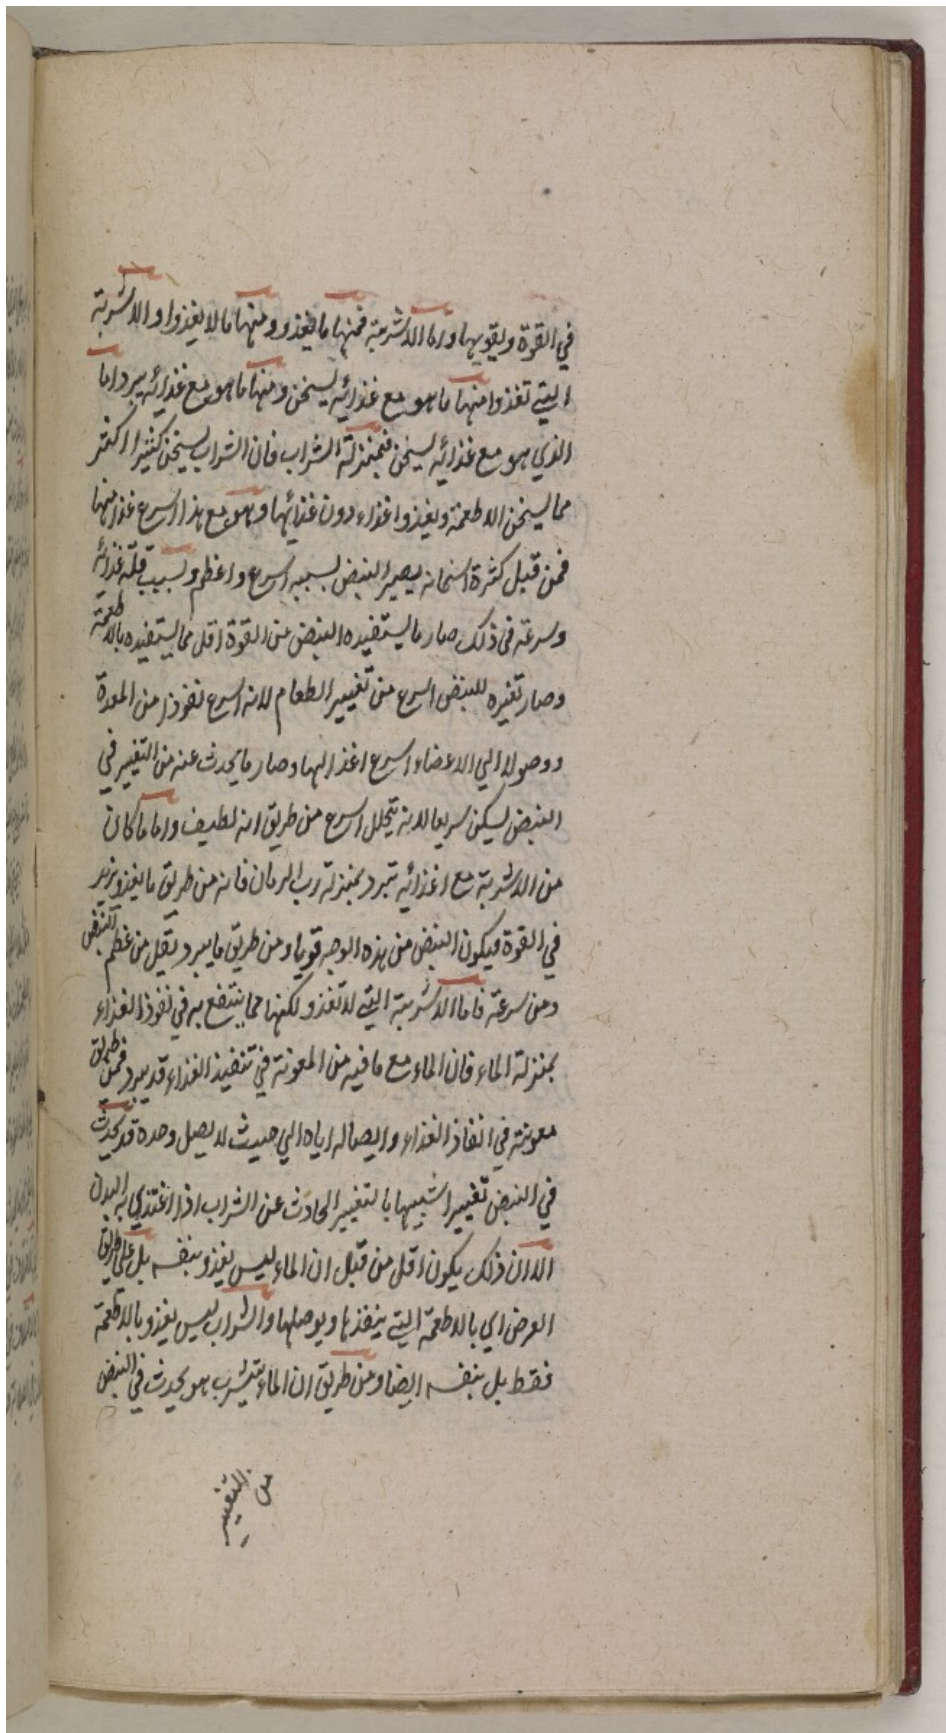 في القوة ويقويها واما الاشربة فمنها ما يغذوا ومنها ما لا يغذوا والاشربة
التي تغذوا منها ما هو مع غذائه يسخن ومنها ما هو مع غذائه يبرد اما
الذي هو مع غذائه يسخن فبمنزلة الشراب فان الشراب يسخن كثيرا اكثر
مما يسخن الاطعمة ويغذوا غذاء دون غذائها وهو مع هذا اسرع غذاء منها
فمن قبل كثرة اسخانه يصير النبض بسببه اسرع واعظم وبسبب قلة غذائه
وسرعته في ذلك صار ما يستفيده النبض من القوة اقل مما يستفيده بالاطعمة
وصار تغيره للنبض اسرع من تغيير الطعام لانه اسرع نفوذا من المعدة
ووصولا الي الاعضاء واسرع اغذا لها وصار ما يحدث عنه من التغيير في
النبض يسكن سريعا لانه يتحلل اسرع من طريق انه لطيف واما ما كان
من الاشربة مع اغذائه تبرد بمنزلة رب الرمان فانه من طريق ما يغذو يزيد
في القوة فيكون النبض من هذه الوجه قويا ومن طريق ما يبرد يقل من عظم النبض
ومن سرعته فاما الاشربة التي لا تغذو لكنها مما ينتفع به في نفوذ الغذاء
بمنزلة الماء فان الماء مع ما فيه من المعونة في تنفيذ الغذاء قد يبرد فمن طريق
معونته في انفاذ الغذاء وايصاله اياه الي حيث لا يصل وحده قد يحدث
في النبض تغييرا شبيها بالتغيير الحادث عن الشراب اذا اغتذي به البدن
الا ان ذلك يكون اقل من قبل ان الماء ليس يغذو بنفسه بل علي طريق
العرض اي بالاطعمة التي ينفذها ويوصلها والشراب ليس يغذو بالاطعمة
فقط بل بنفسه ايضا ومن طريق ان الماء يشرب هو يحدث في النبض
من التغيير